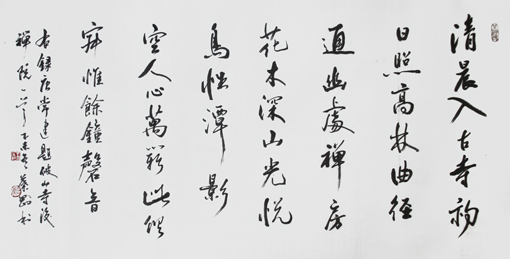 清晨入古寺初
日照高林曲徑
通幽處禪房
花木深山光悅
鳥性潭影
空人心萬籟此俱
寂惟餘鐘磬音
右錄唐常建題破山寺後
禪院一首